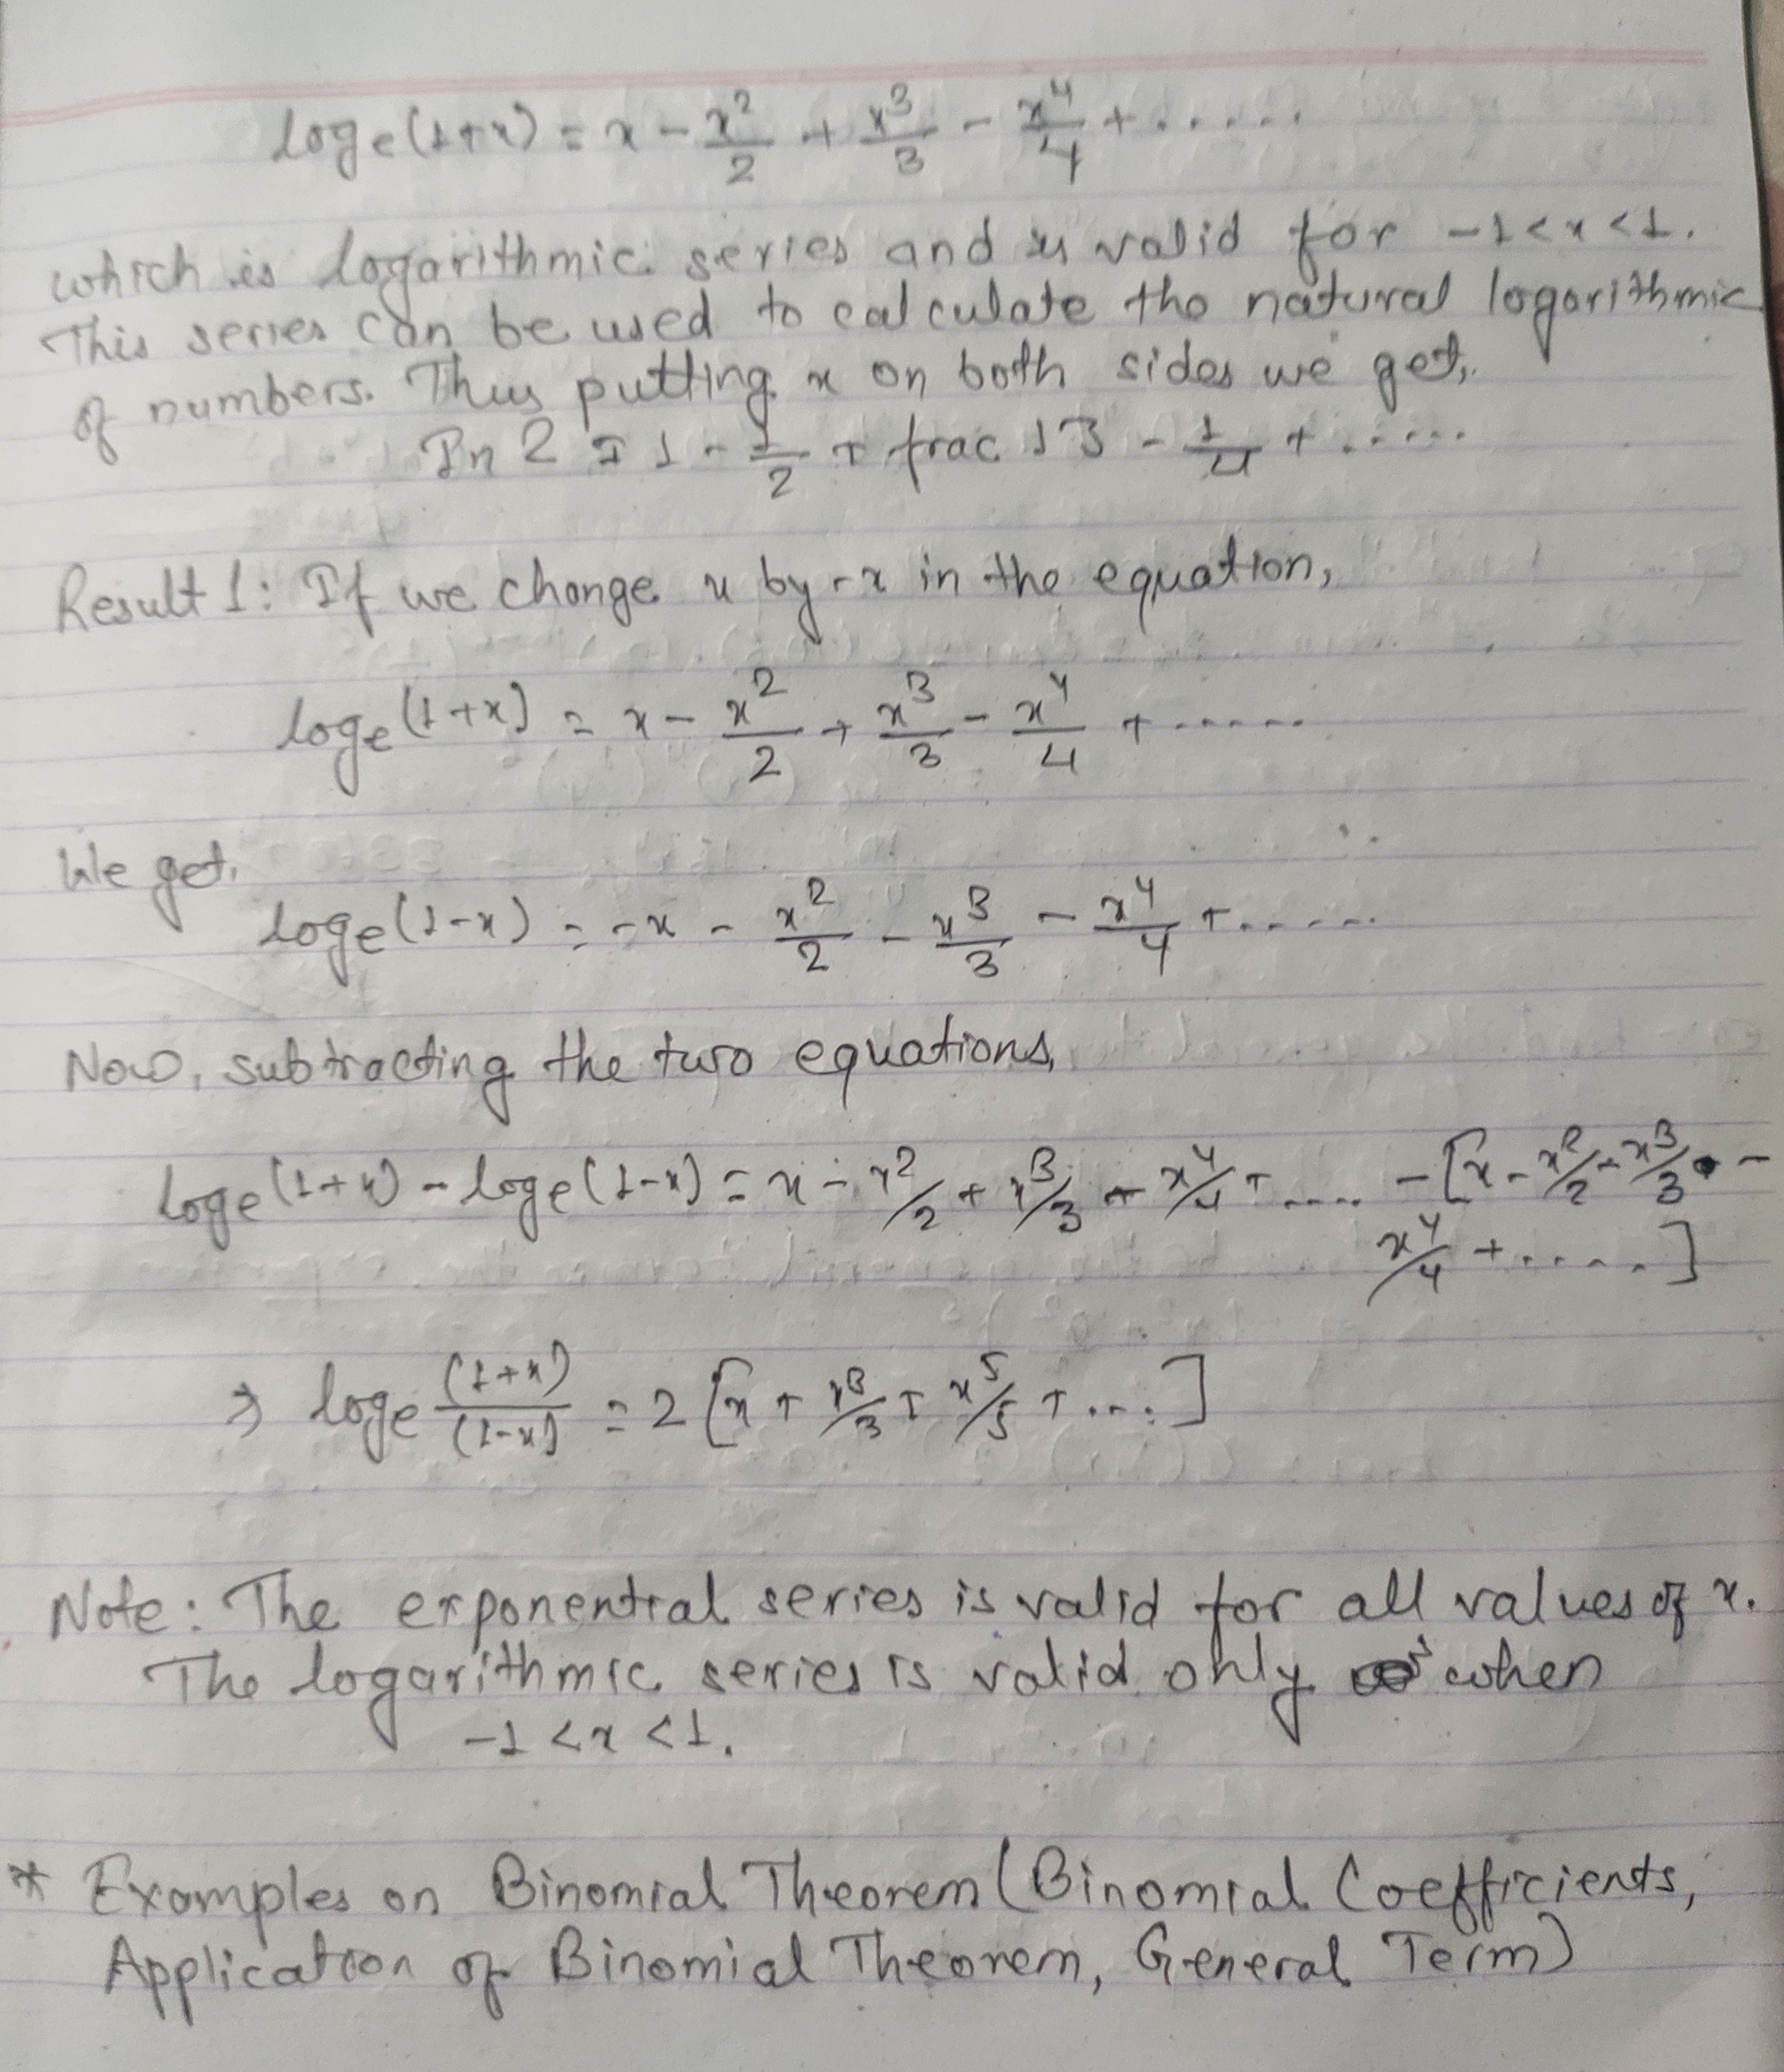 loge(1+x) = x - x²/2 + x³/3 - x⁴/4 + ......
which is logarithmic series and is valid for -1<x<1.
This series can be used to calculate the natural logarithmic
of numbers. Thus putting x on both sides we get,
In 2 = 1 - 1/2 + frac 13 - 1/4 + ......
Result 1: If we change x by -x in the equation,
loge(1+x) = x - x²/2 + x³/3 - x⁴/4 + ......
We get,
loge(1-x) = -x - x²/2 - x³/3 - x⁴/4 + ......
Now, subtracting the two equations,
loge(1+x) - loge(1-x) = x - x²/2 + x³/3 + x⁴/4 + .... - [x - x²/2 - x³/3 -
x⁴/4 + .....]
⇒ loge (1+x)/(1-x) = 2 [x + x³/3 + x⁵/5 + ....]
Note: The exponential series is valid for all values of x.
The logarithmic series is valid only when
-1 < x < 1.
* Examples on Binomial Theorem (Binomial Coefficients,
Application of Binomial Theorem, General Term)